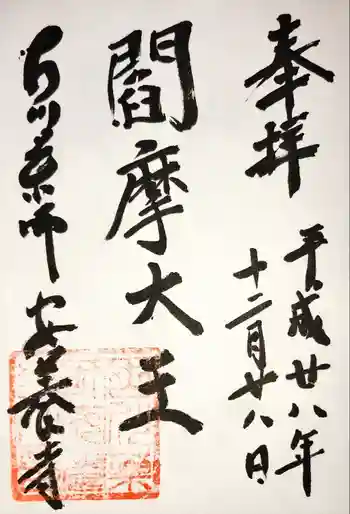 奉拝
平成廿八年
十二月廿八日
閻魔大王
安養寺